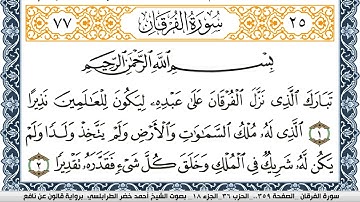 ٢٥ سُورَةُ الْفُرْقَانِ ٧٧
بِسْمِ اللَّهِ الرَّحْمَٰنِ الرَّحِيمِ
تَبَارَكَ الَّذِى نَزَّلَ الْفُرْقَانَ عَلَىٰ عَبْدِهِۦ لِيَكُونَ لِلْعَالَمِينَ نَذِيرًا
١ الَّذِى لَهُۥ مُلْكُ السَّمَٰوَٰتِ وَالْأَرْضِ وَلَمْ يَتَّخِذْ وَلَدًا وَلَمْ
يَكُن لَّهُۥ شَرِيكٌ فِى الْمُلْكِ وَخَلَقَ كُلَّ شَىْءٍ فَقَدَّرَهُۥ تَقْدِيرًا ٢
سورة الفرقان _الصفحة ٣٥٩_ الحزب ٣٦_ الجزء ١٨ _ بصوت الشيخ أحمد خضر الطرابلسي _برواية قالون عن نافع